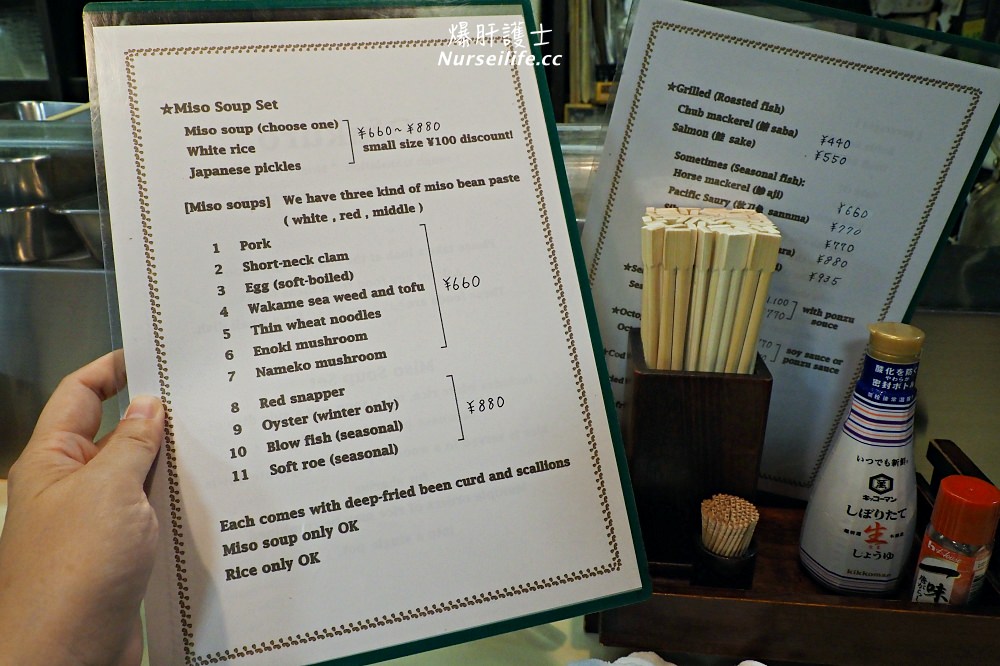 爆肝護士
Nurseilife.cc
★Miso Soup Set
Miso soup (choose one)
White rice
Japanese pickles
¥660~¥880
small size ¥100 discount!
[Miso soups] We have three kind of miso bean paste
( white , red , middle )
1 Pork
2 Short-neck clam
3 Egg (soft-boiled)
4 Wakame sea weed and tofu
5 Thin wheat noodles
6 Enoki mushroom
7 Nameko mushroom
¥660
8 Red snapper
9 Oyster (winter only)
10 Blow fish (seasonal)
11 Soft roe (seasonal)
¥880
Each comes with deep-fried been curd and scallions
Miso soup only OK
Rice only OK
★Grilled (Roasted fish)
Chub mackerel (鯖 saba) ¥440
Salmon (鮭 sake) ¥550
Sometimes (Seasonal fish):
Horse mackerel (鯵 aji) ¥660
Pacific Saury (秋刀魚 sannma) ¥770
¥770
¥880
¥935
1.100
770
with ponzu
souce
★Octo
770
soy sauce or
ponzu sauce
★Cod
酸化を防ぐ
やわらか
密封ボトル
いつでも新鮮
キッコーマン
しぼりたて
生
しょうゆ
kikkoman
一味